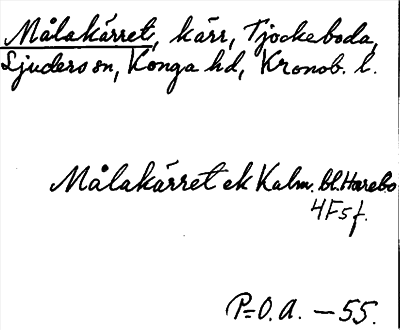 Målakärret, kärr, Tjockeboda,
Ljuders sn, Konga hd, Kronob. l.
Målakärret ek Kalm. bl. Harebo
4F5f.
P=O.A. - 55.